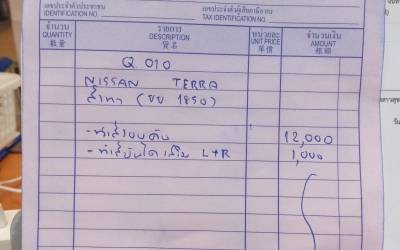 เลขประจำตัวประชาชน
IDENTIFICATION NO.
เลขประจำตัวผู้เสียภาษีอากร
TAX IDENTIFICATION NO.
จำนวน รายการ หน่วยละ จำนวนเงิน
QUANTITY DESCRIPTION UNIT PRICE AMOUNT
數量 貨名 單價 銀額
Q 010
NISSAN TERRA
สีเทา (ขบ 1850)
- ทำสีรอบคัน 12,000
- ทำสีบันได L+R 1,000